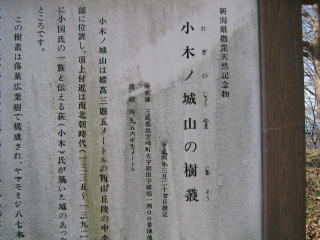 新潟県指定天然記念物
おぎのじょうやま じゅそう
小木ノ城山の樹叢
平成四年三月二十七日指定
所在地 三島郡出雲崎町大字
面積 四九五六平方メートル
小木ノ城山は標高三四五メートルの西山丘陵の中央
部に位置し、頂上付近は南北朝時代(一三三五~一三九二
に小国氏の一族と伝える荻(小木)氏が築いた城のあっ
ところです。
この樹叢は落葉広葉樹で構成され、ヤマモミジ八七本